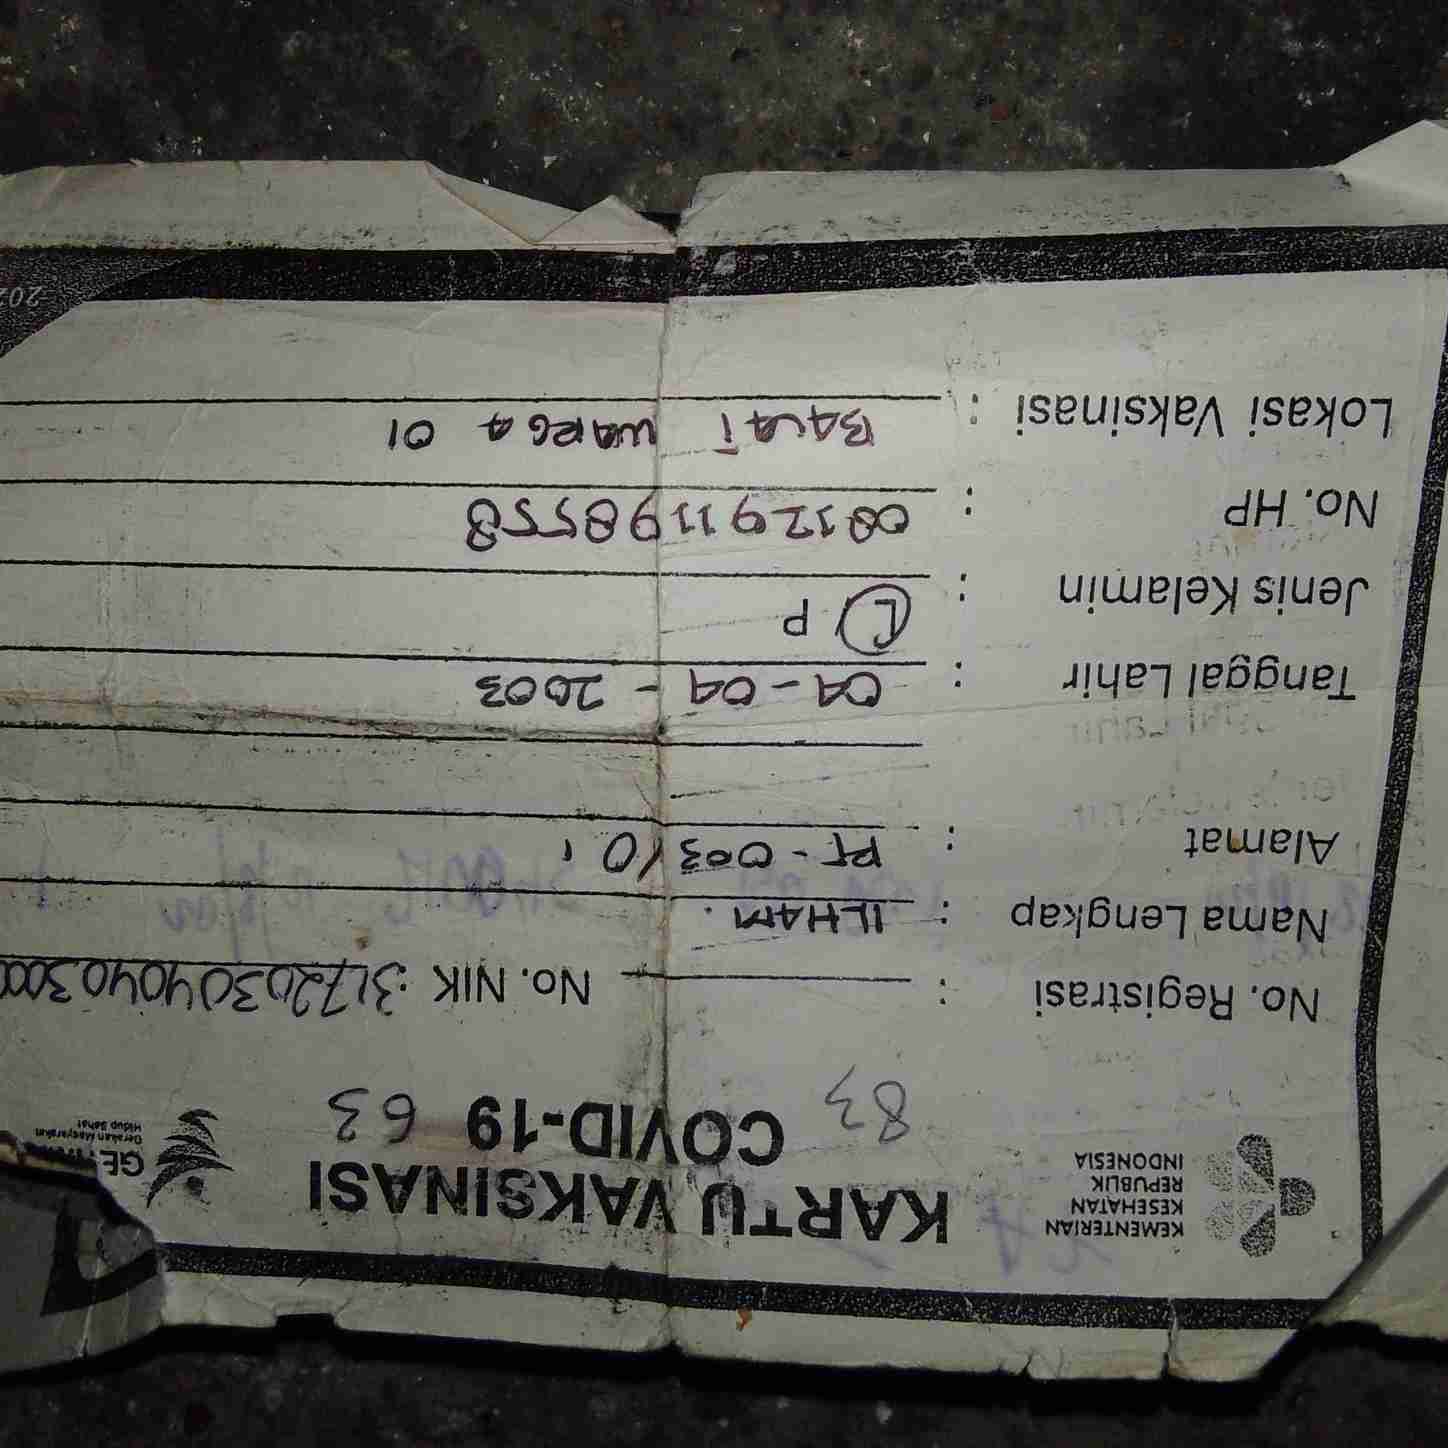 KEMENTERIAN
KESEHATAN
REPUBLIK
INDONESIA
KARTU VAKSINASI
COVID-19
Gerakan Masyarakat
Hidup Sehat
83
63
No. Registrasi : No. NIK : 317203040403000
Nama Lengkap : ILHAM.
Alamat : RT-003/01
Tanggal Lahir : 04-04-2003
Jenis Kelamin : L P
No. HP : 081291198558
Lokasi Vaksinasi : BALAI WARGA 01